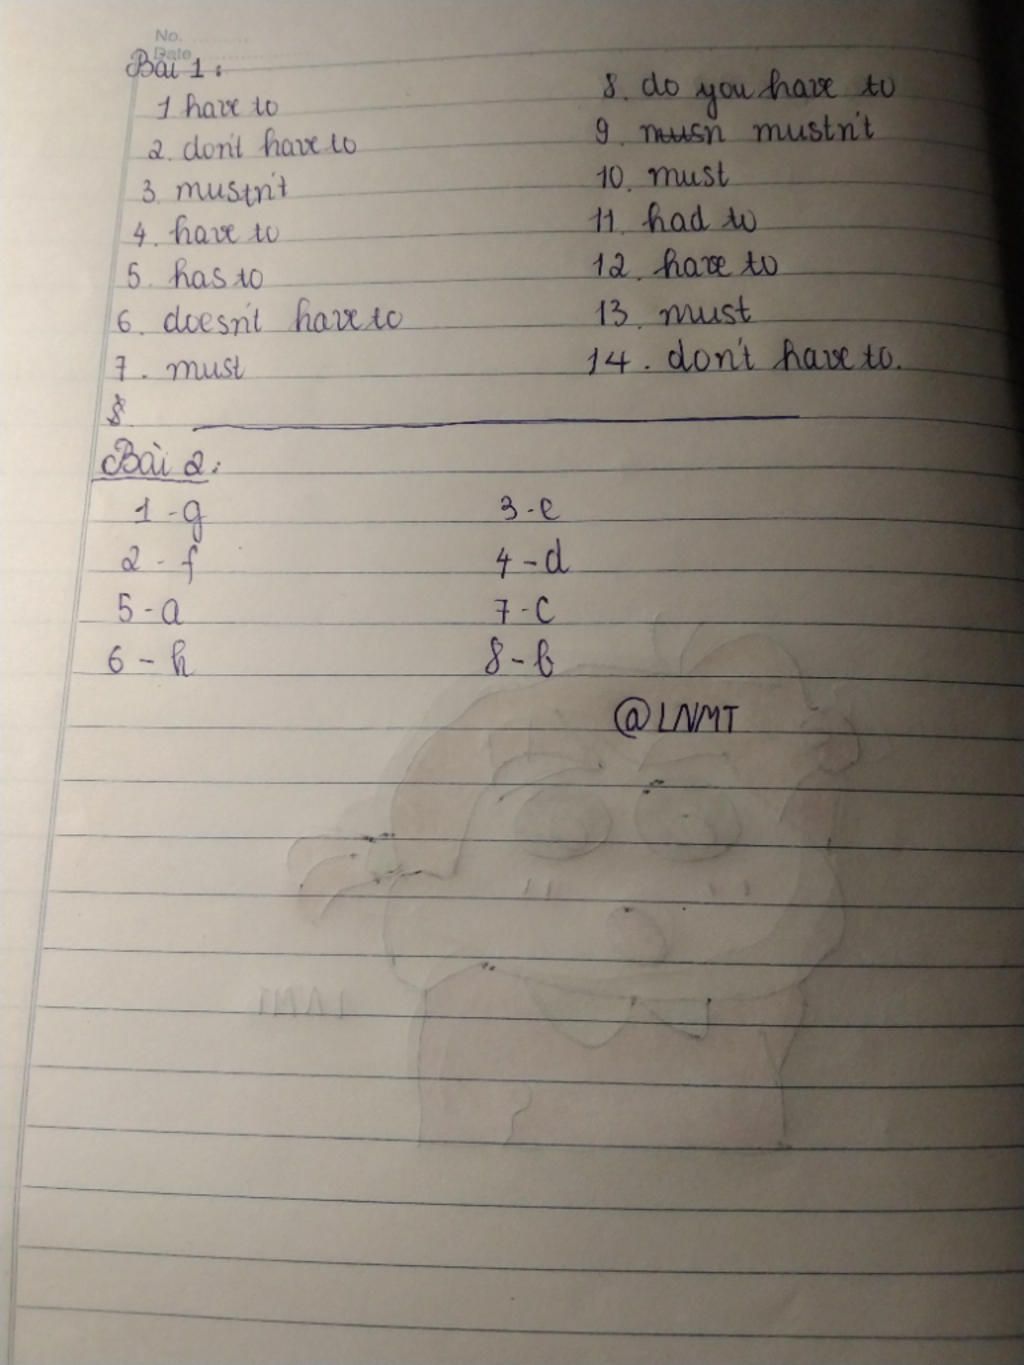 No.
Date
Bài 1:
1 have to
2. don't have to
3. mustn't
4. have to
5. has to
6. doesn't have to
7. must
8
8. do you have to
9 musn mustn't
10. must
11. had to
12. have to
13. must
14. don't have to.
Bài 2:
1 - g
3 - e
2 - f
4 - d
5 - a
7 - c
6 - h
8 - b
@LNMT